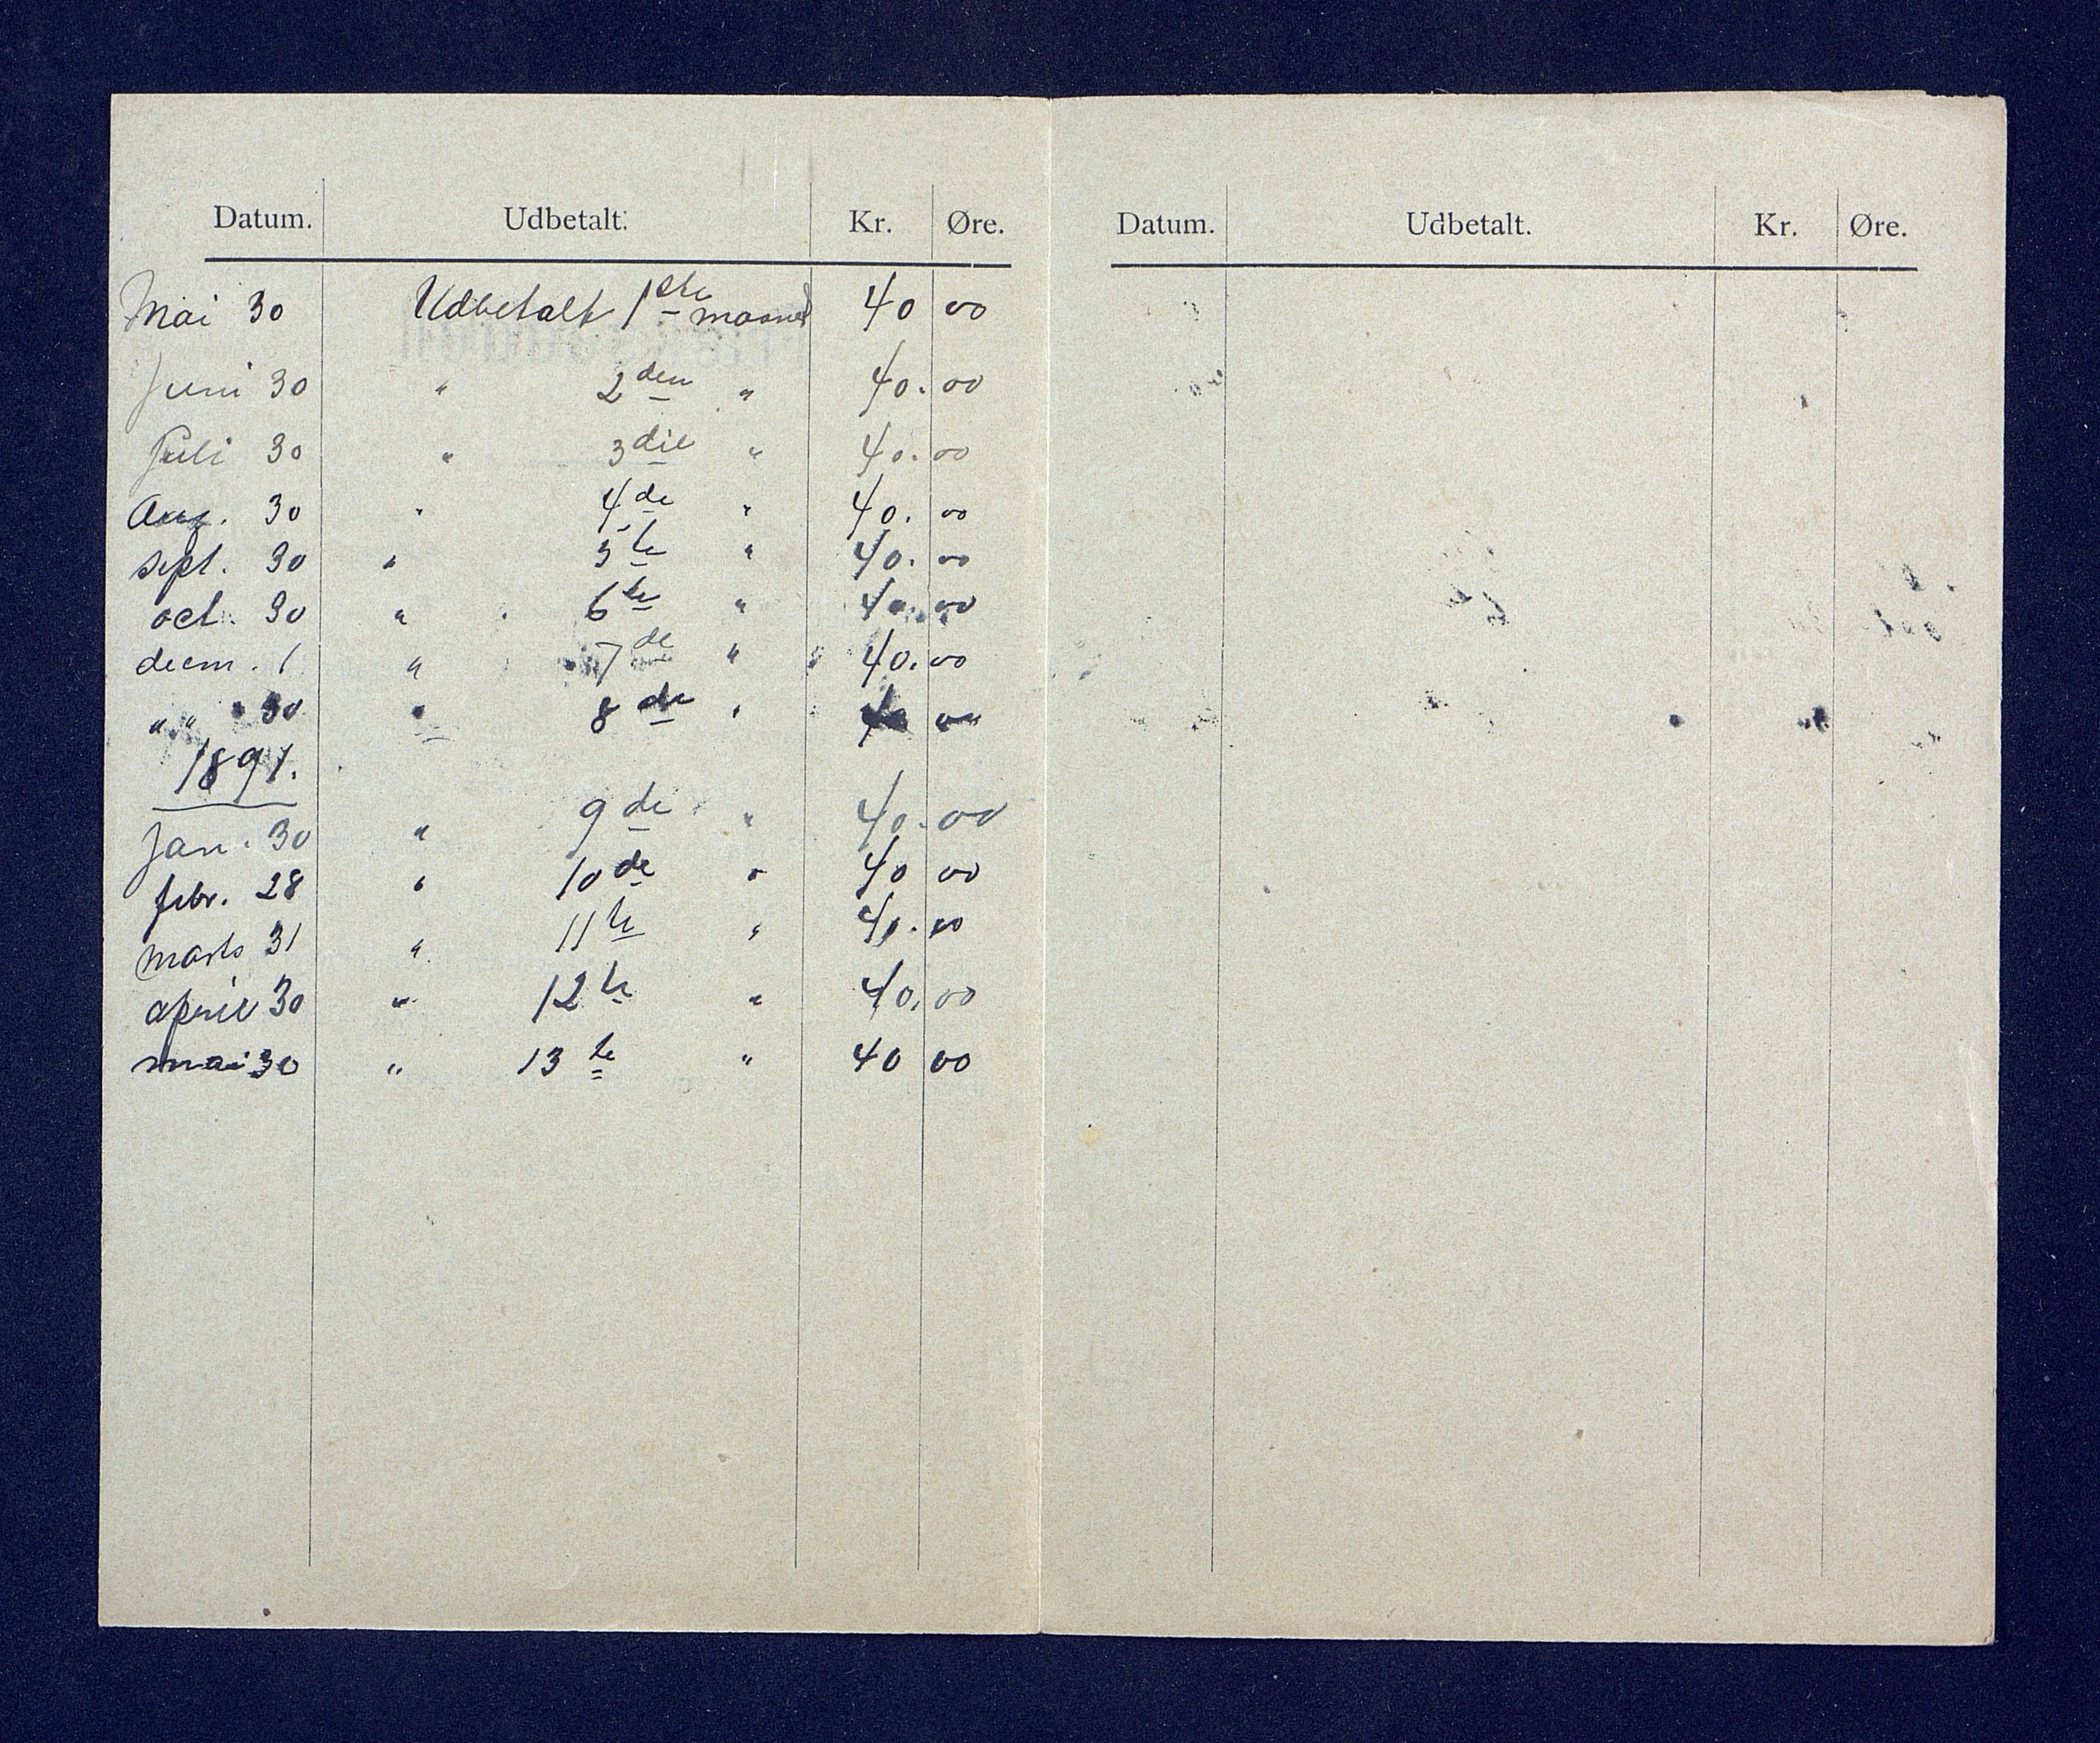 Datum. Udbetalt. Kr. Øre.
Mai 30 Udbetalt 1ste maaned 40 00
Juni 30 " 2den " 40. 00
Juli 30 " 3die " 40. 00
Aug. 30 " 4de " 40. 00
sept. 30 " 5te " 40. 00
oct. 30 " 6te " 40. 00
decm. 1 " 7de " 40. 00
" " 30 " 8de " 40 00
1891.
Jan. 30 " 9de " 40. 00
febr. 28 " 10de " 40 00
marts 31 " 11te " 40. 00
april 30 " 12te " 40. 00
mai 30 " 13te " 40 00
Datum. Udbetalt. Kr. Øre.